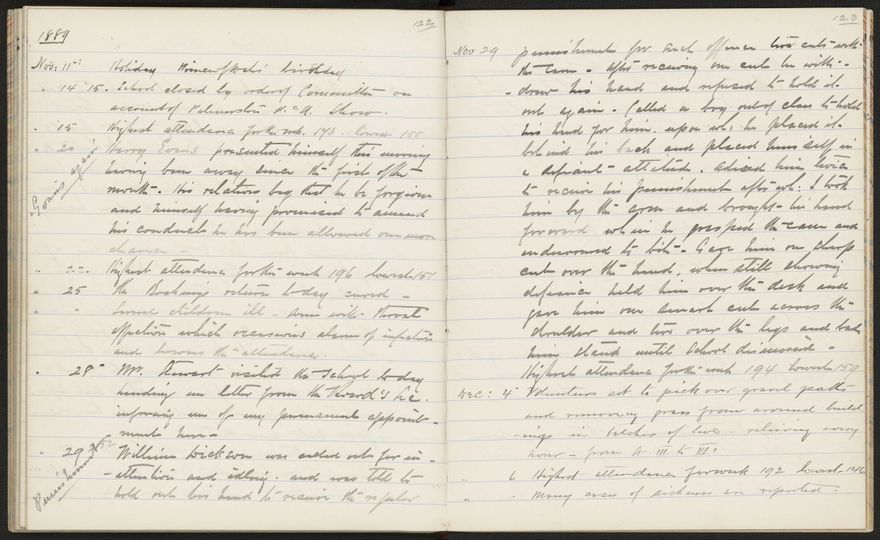 122
1889
Nov: 11th Holiday Prince of Wales' birthday
" 14-15. School closed by order of Committee on
account of Palmerston N. & A. Show.
" 15 Highest attendance for the week 193. lowest 155
" 20 Harry Evans presented himself this morning
having been away since the first of the
month. His relatives beg that he be forgiven
and himself having promised to amend
his conduct he has been allowed one more
chance —
Evans again
" 22. Highest attendance for the week 196 lowest 151
" 25 The return to day cured —
" " Several children ill — some with throat
affection which occasions alarm of infection
and lowers the attendance.
" 28th Mr. Stewart visited the School to day
handing me letter from the Board's Sec.
informing me of my permanent appoint-
ment here —
" 29 William Dickson was called out for in-
-attention and idling. and was told to
hold out his hand to receive the regular
Punishment
123
Nov 29 punishment for such offence two cuts with
the cane — After receiving one cut he with-
-drew his hand and refused to hold it
out again. Called a boy out of class to hold
his hand for him. upon wh: he placed it
behind his back and placed himself in
a defiant attitude. Advised him twice
to receive his punishment after wh: I took
him by the arm and brought his hand
forward when he grasped the cane and
endeavoured to bite — Gave him one sharp
cut over the hand, when still showing
defiance held him over the desk and
gave him one smart cut across the
shoulder and two over the legs and bade
him stand until School dismissed —
Highest attendance for the week 194 lowest 159
Dec: 4 Volunteers set to pick over gravel path
and removing grass from around build-
-ings in batches of two — relieving every
hour — from St. III to VI:
" 6 Highest attendance for week 192 lowest 146
" " Many cases of sickness are reported: